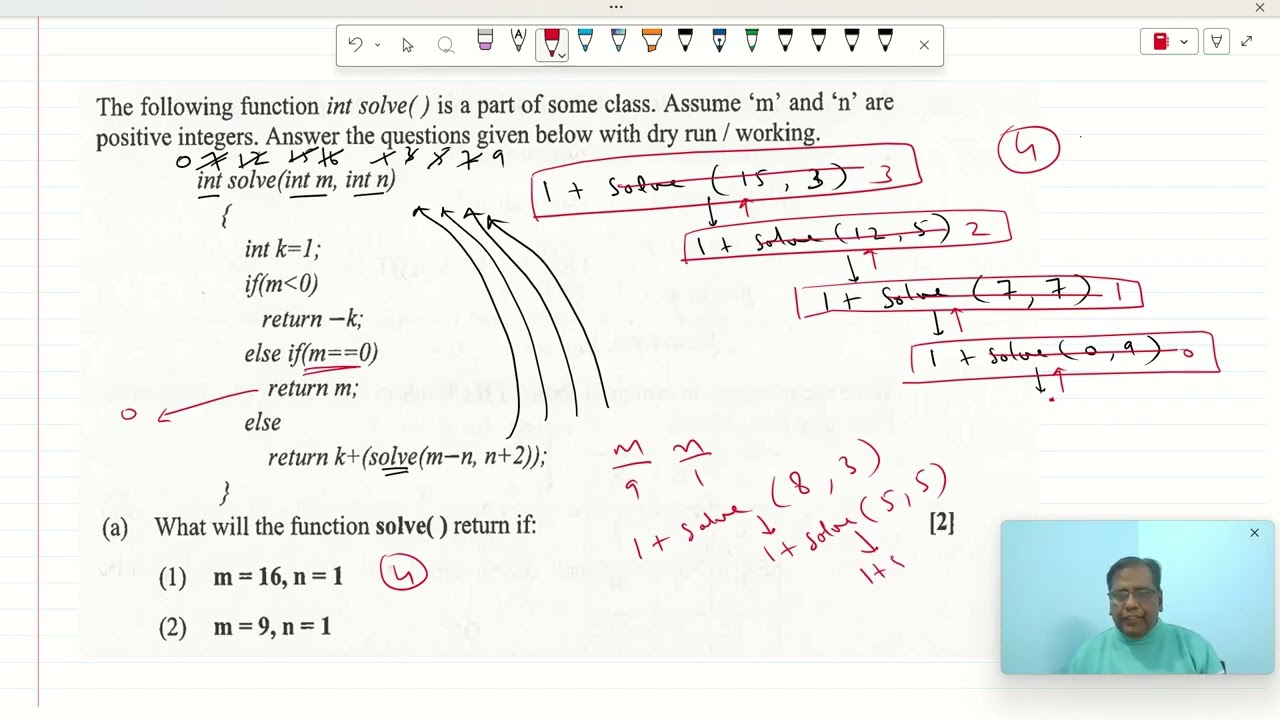 The following function int solve( ) is a part of some class. Assume ‘m’ and ‘n’ are
positive integers. Answer the questions given below with dry run / working.
0 7 12 15 16 1 3 5 7 9
int solve(int m, int n)
{
int k=1;
if(m<0)
return –k;
else if(m==0)
return m;
else
return k+(solve(m–n, n+2));
}
0
4
1 + solve (15, 3) 3
1 + solve (12, 5) 2
1 + solve (7, 7) 1
1 + solve (0, 9) 0
m n
9 1
1 + solve (8, 3)
1 + solve (5, 5)
1 +
(a) What will the function solve( ) return if: [2]
(1) m = 16, n = 1 4
(2) m = 9, n = 1